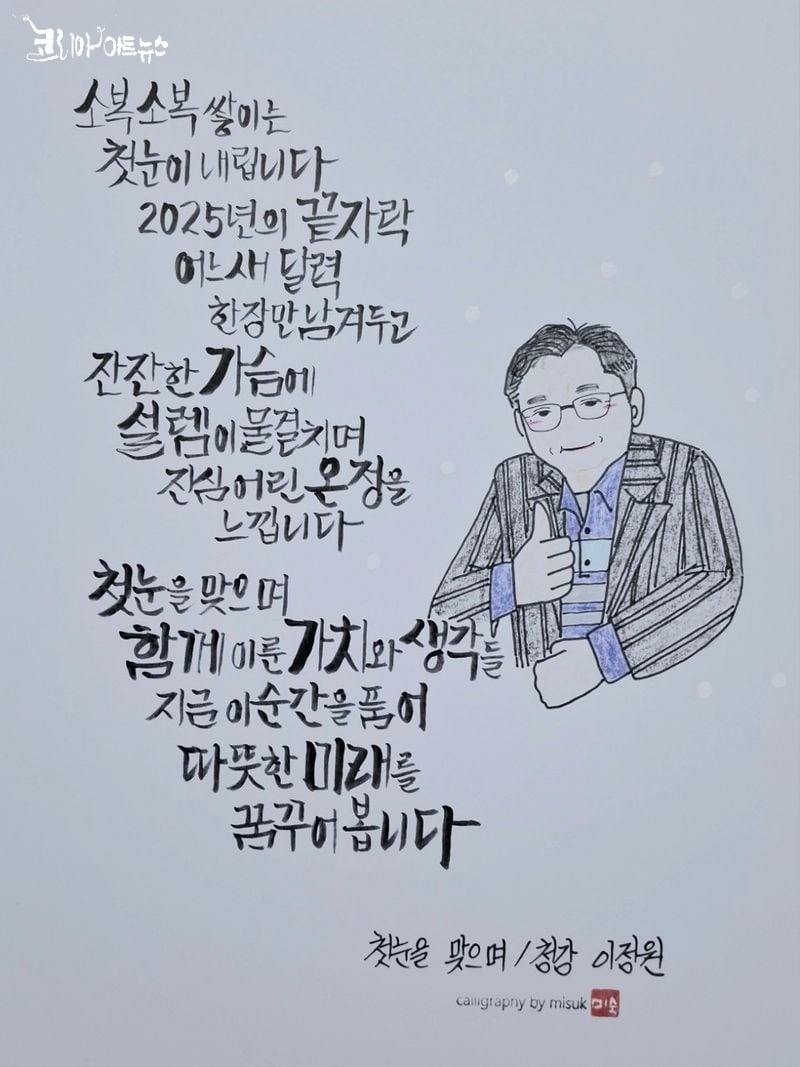 코리아아트뉴스
소복소복 쌓이는
첫눈이 내립니다
2025년의 끝자락
어느새 달력
한장만 남겨두고
잔잔한 가슴에
설렘이 물결치며
진심 어린 온정을
느낍니다
첫눈을 맞으며
함께 이룬 가치와 생각들
지금 이 순간을 품어
따뜻한 미래를
꿈꾸어 봅니다
첫눈을 맞으며 / 청강 이정원
calligraphy by misuk 미숙